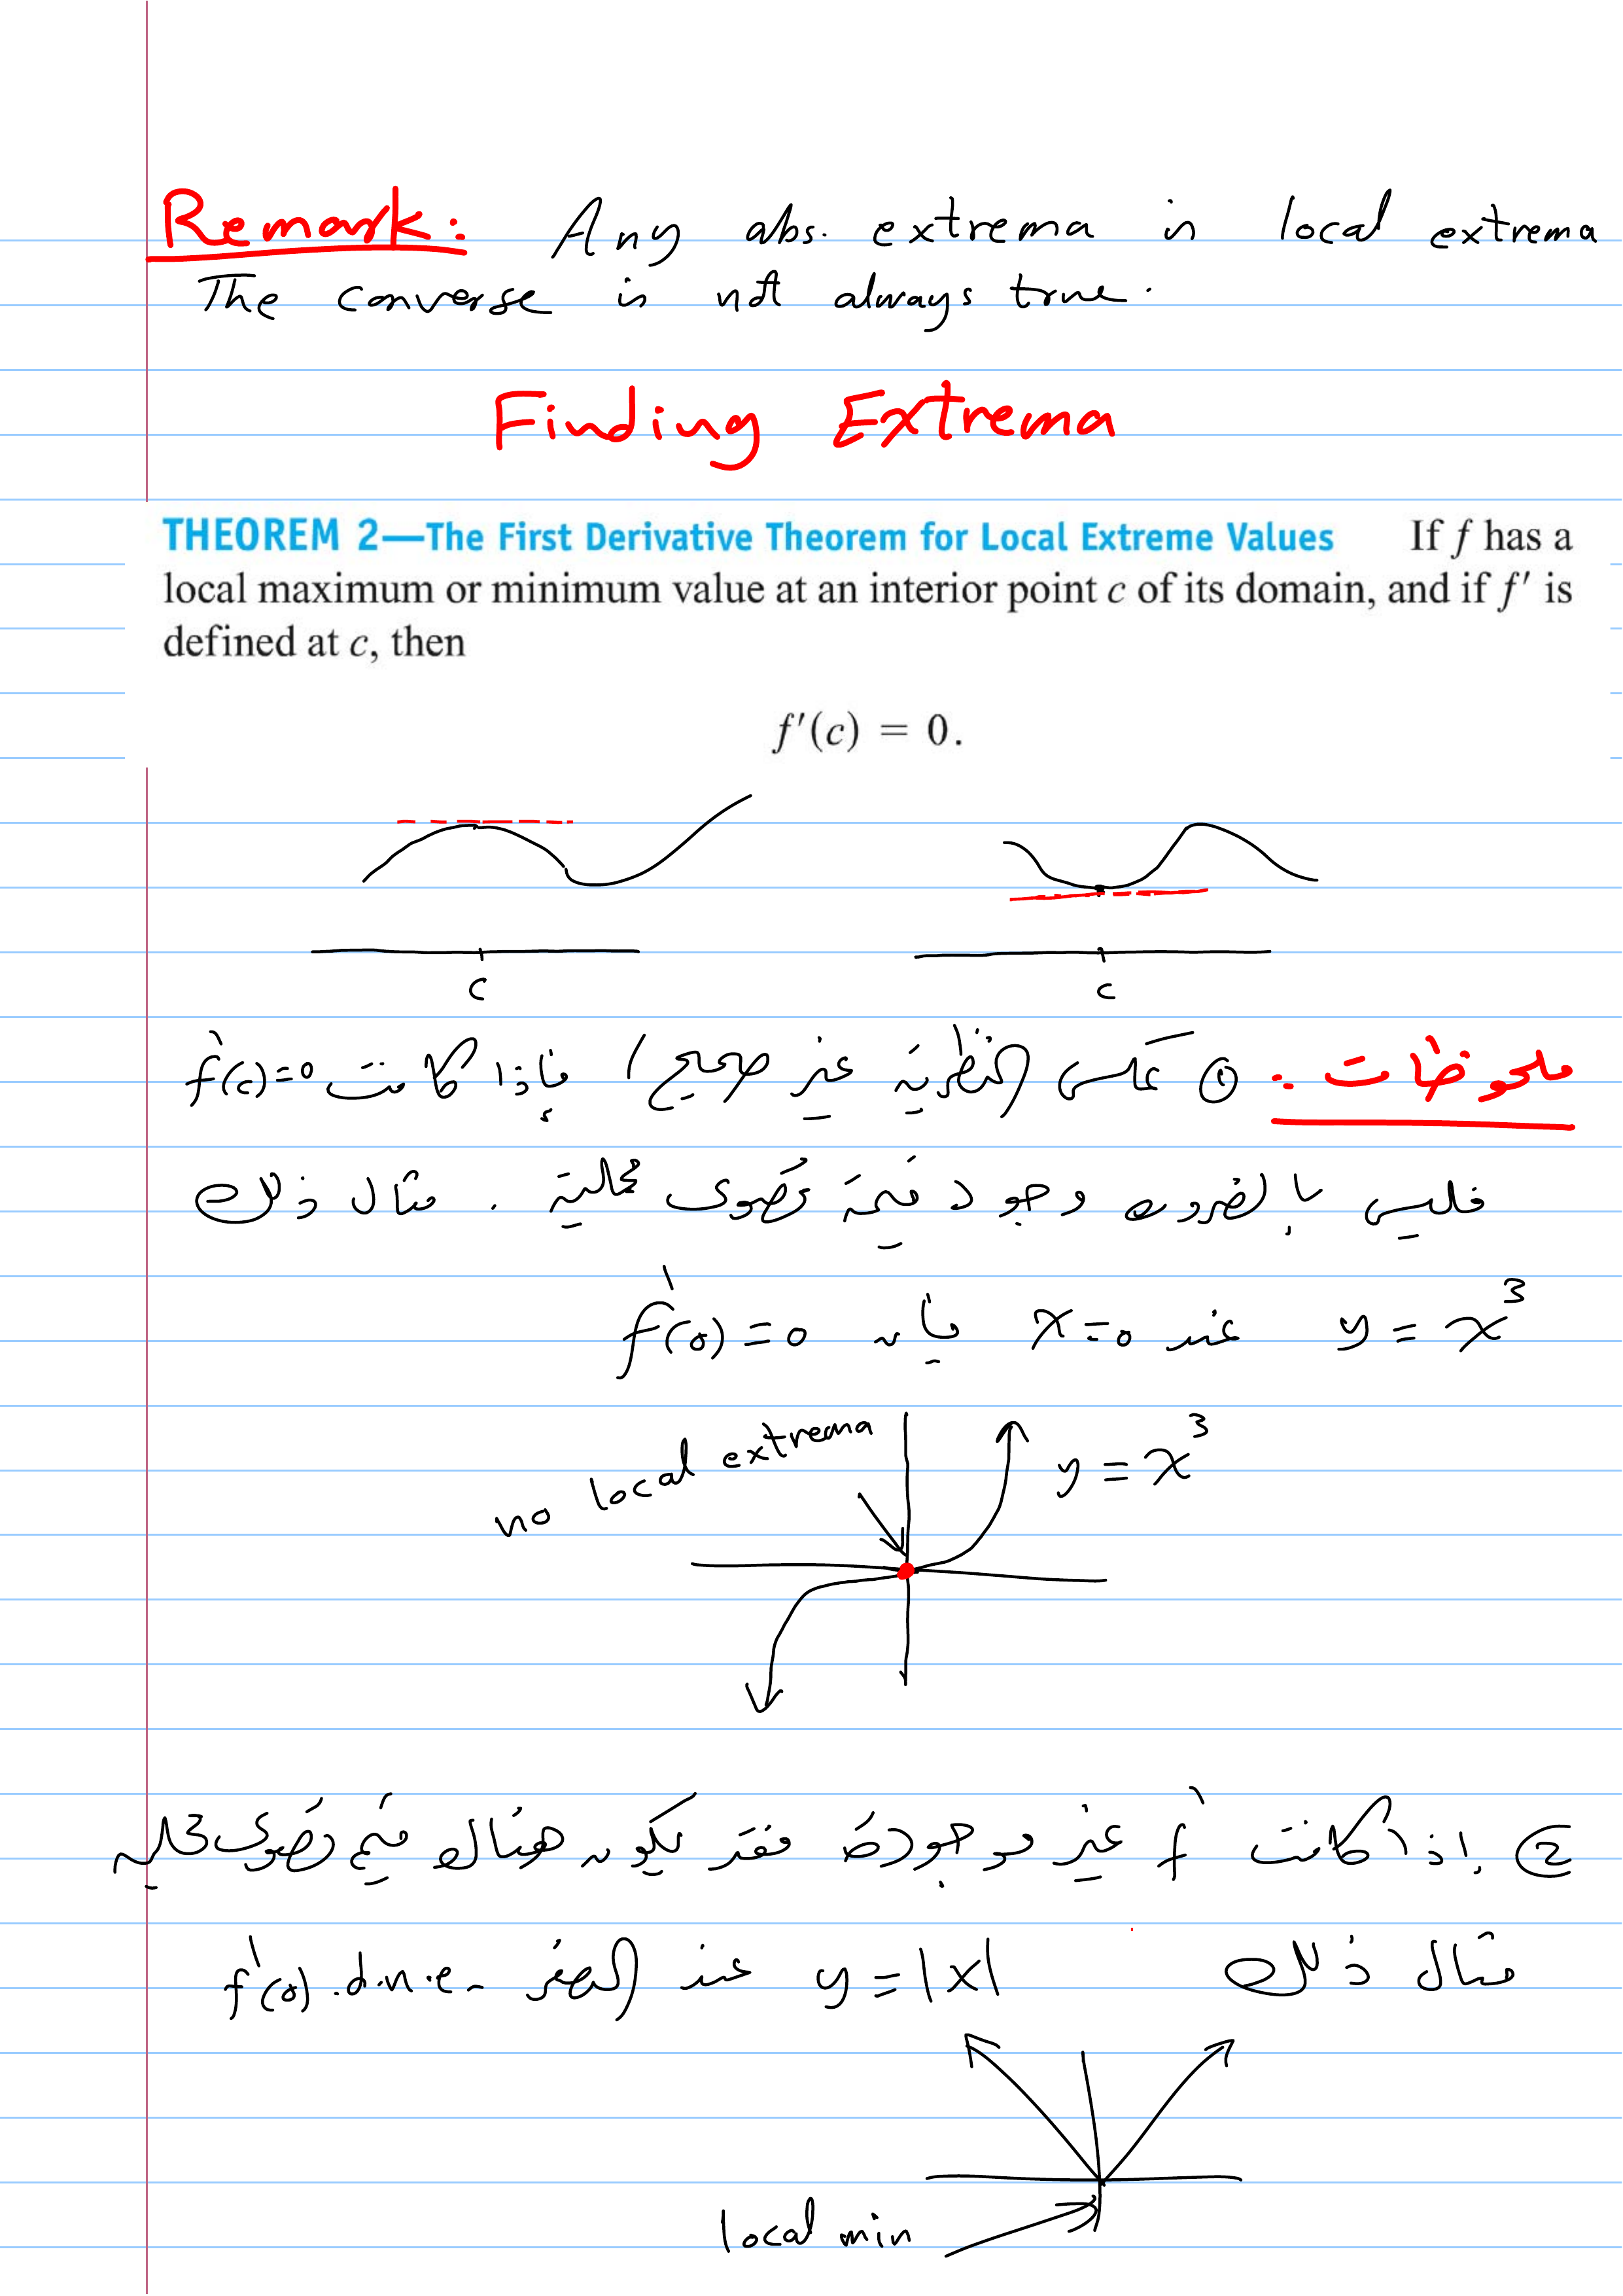 Remark: Any abs. extrema is local extrema
The converse is not always true.
Finding Extrema
THEOREM 2—The First Derivative Theorem for Local Extreme Values If f has a
local maximum or minimum value at an interior point c of its domain, and if f′ is
defined at c, then
f′(c) = 0.
c
c
ملحوظات: ① عكس النظرية غير صحيح، فإذا كانت f′(c)=0
فليس بالضرورة وجود قيمة قصوى محلية. مثال ذلك
y = x³ عند x=0 فإن f′(0)=0
no local extrema
y = x³
② إذا كانت f′ غير موجودة فقد يكون هناك قيم قصوى محلية
مثال ذلك y=|x| عند الصفر f′(0) d.n.e.
local min